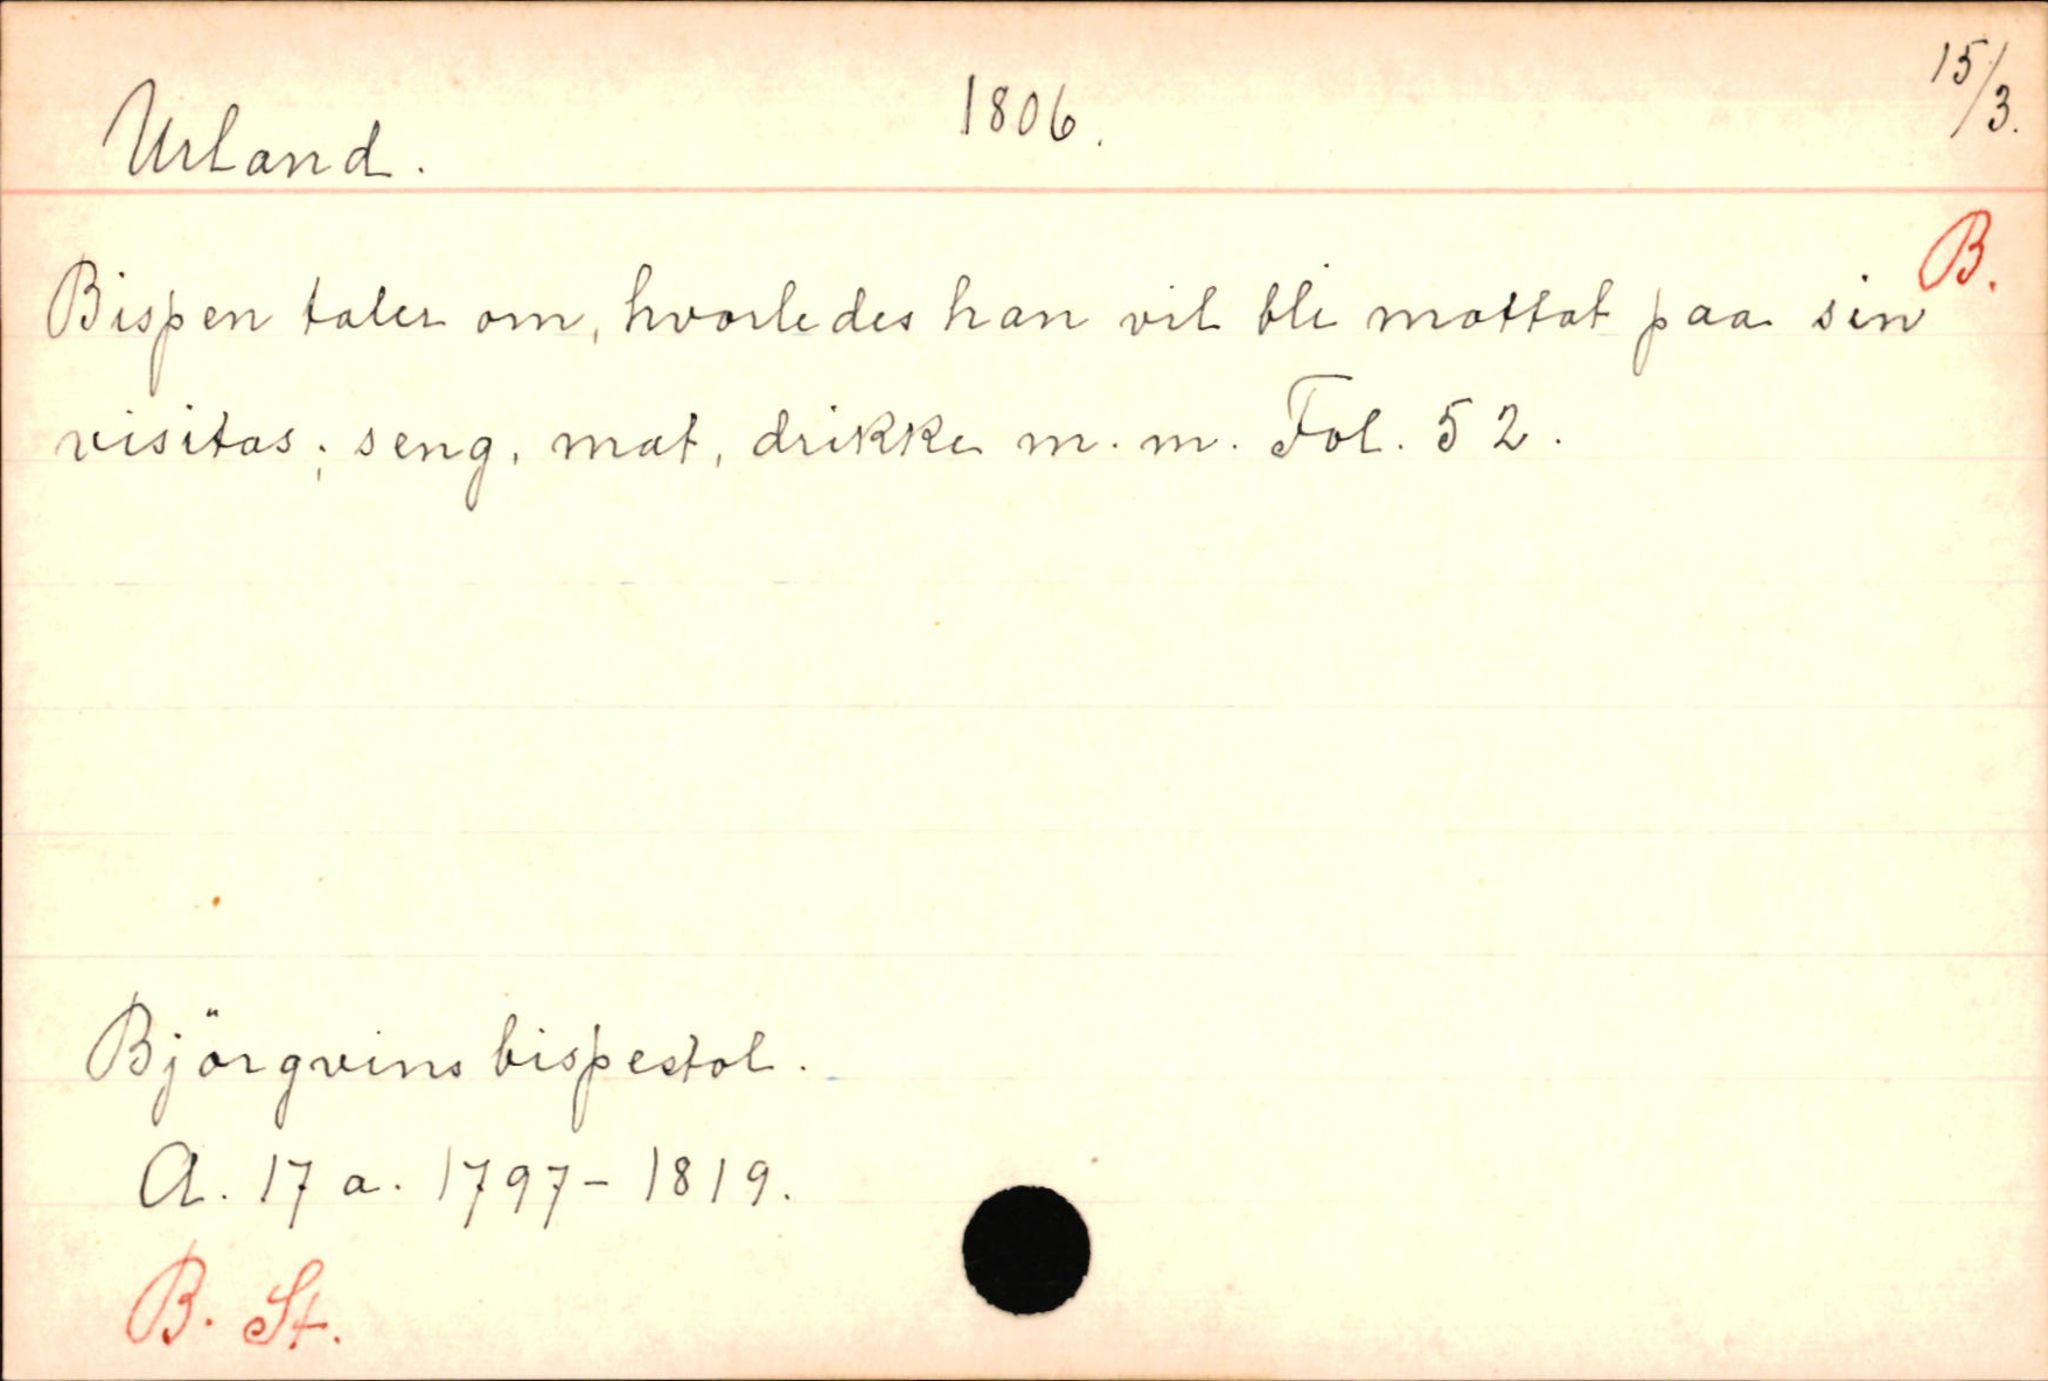 Urland. 1806. 15/3.
B.
Bispen taler om, hvorledes han vil bli mottat paa sin
visitas; seng, mat, drikke m. m. Fol. 52.
Björgvins bispestol.
A. 17 a. 1797-1819.
B. St.